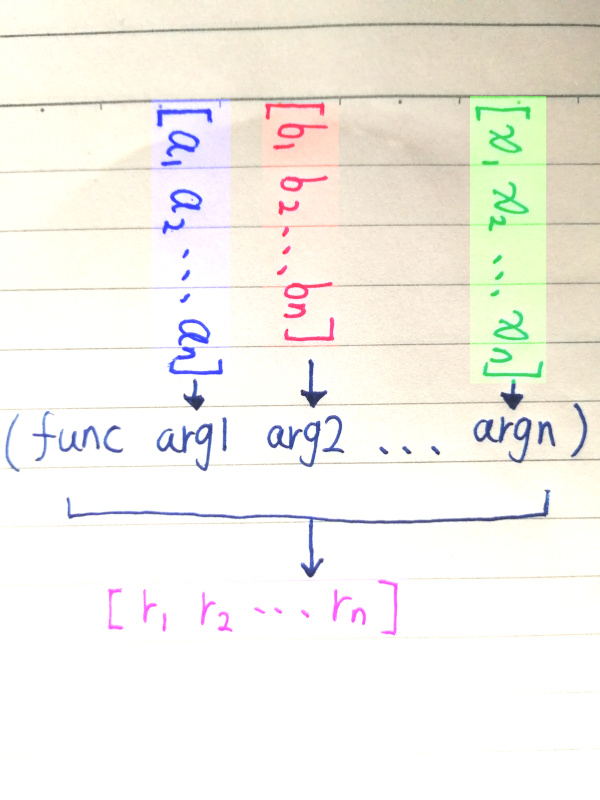 [a₁ a₂ ... aₙ]
[b₁ b₂ ... bₙ]
[x₁ x₂ ... xₙ]
(func arg1 arg2 ... argn)
[r₁ r₂ ... rₙ]